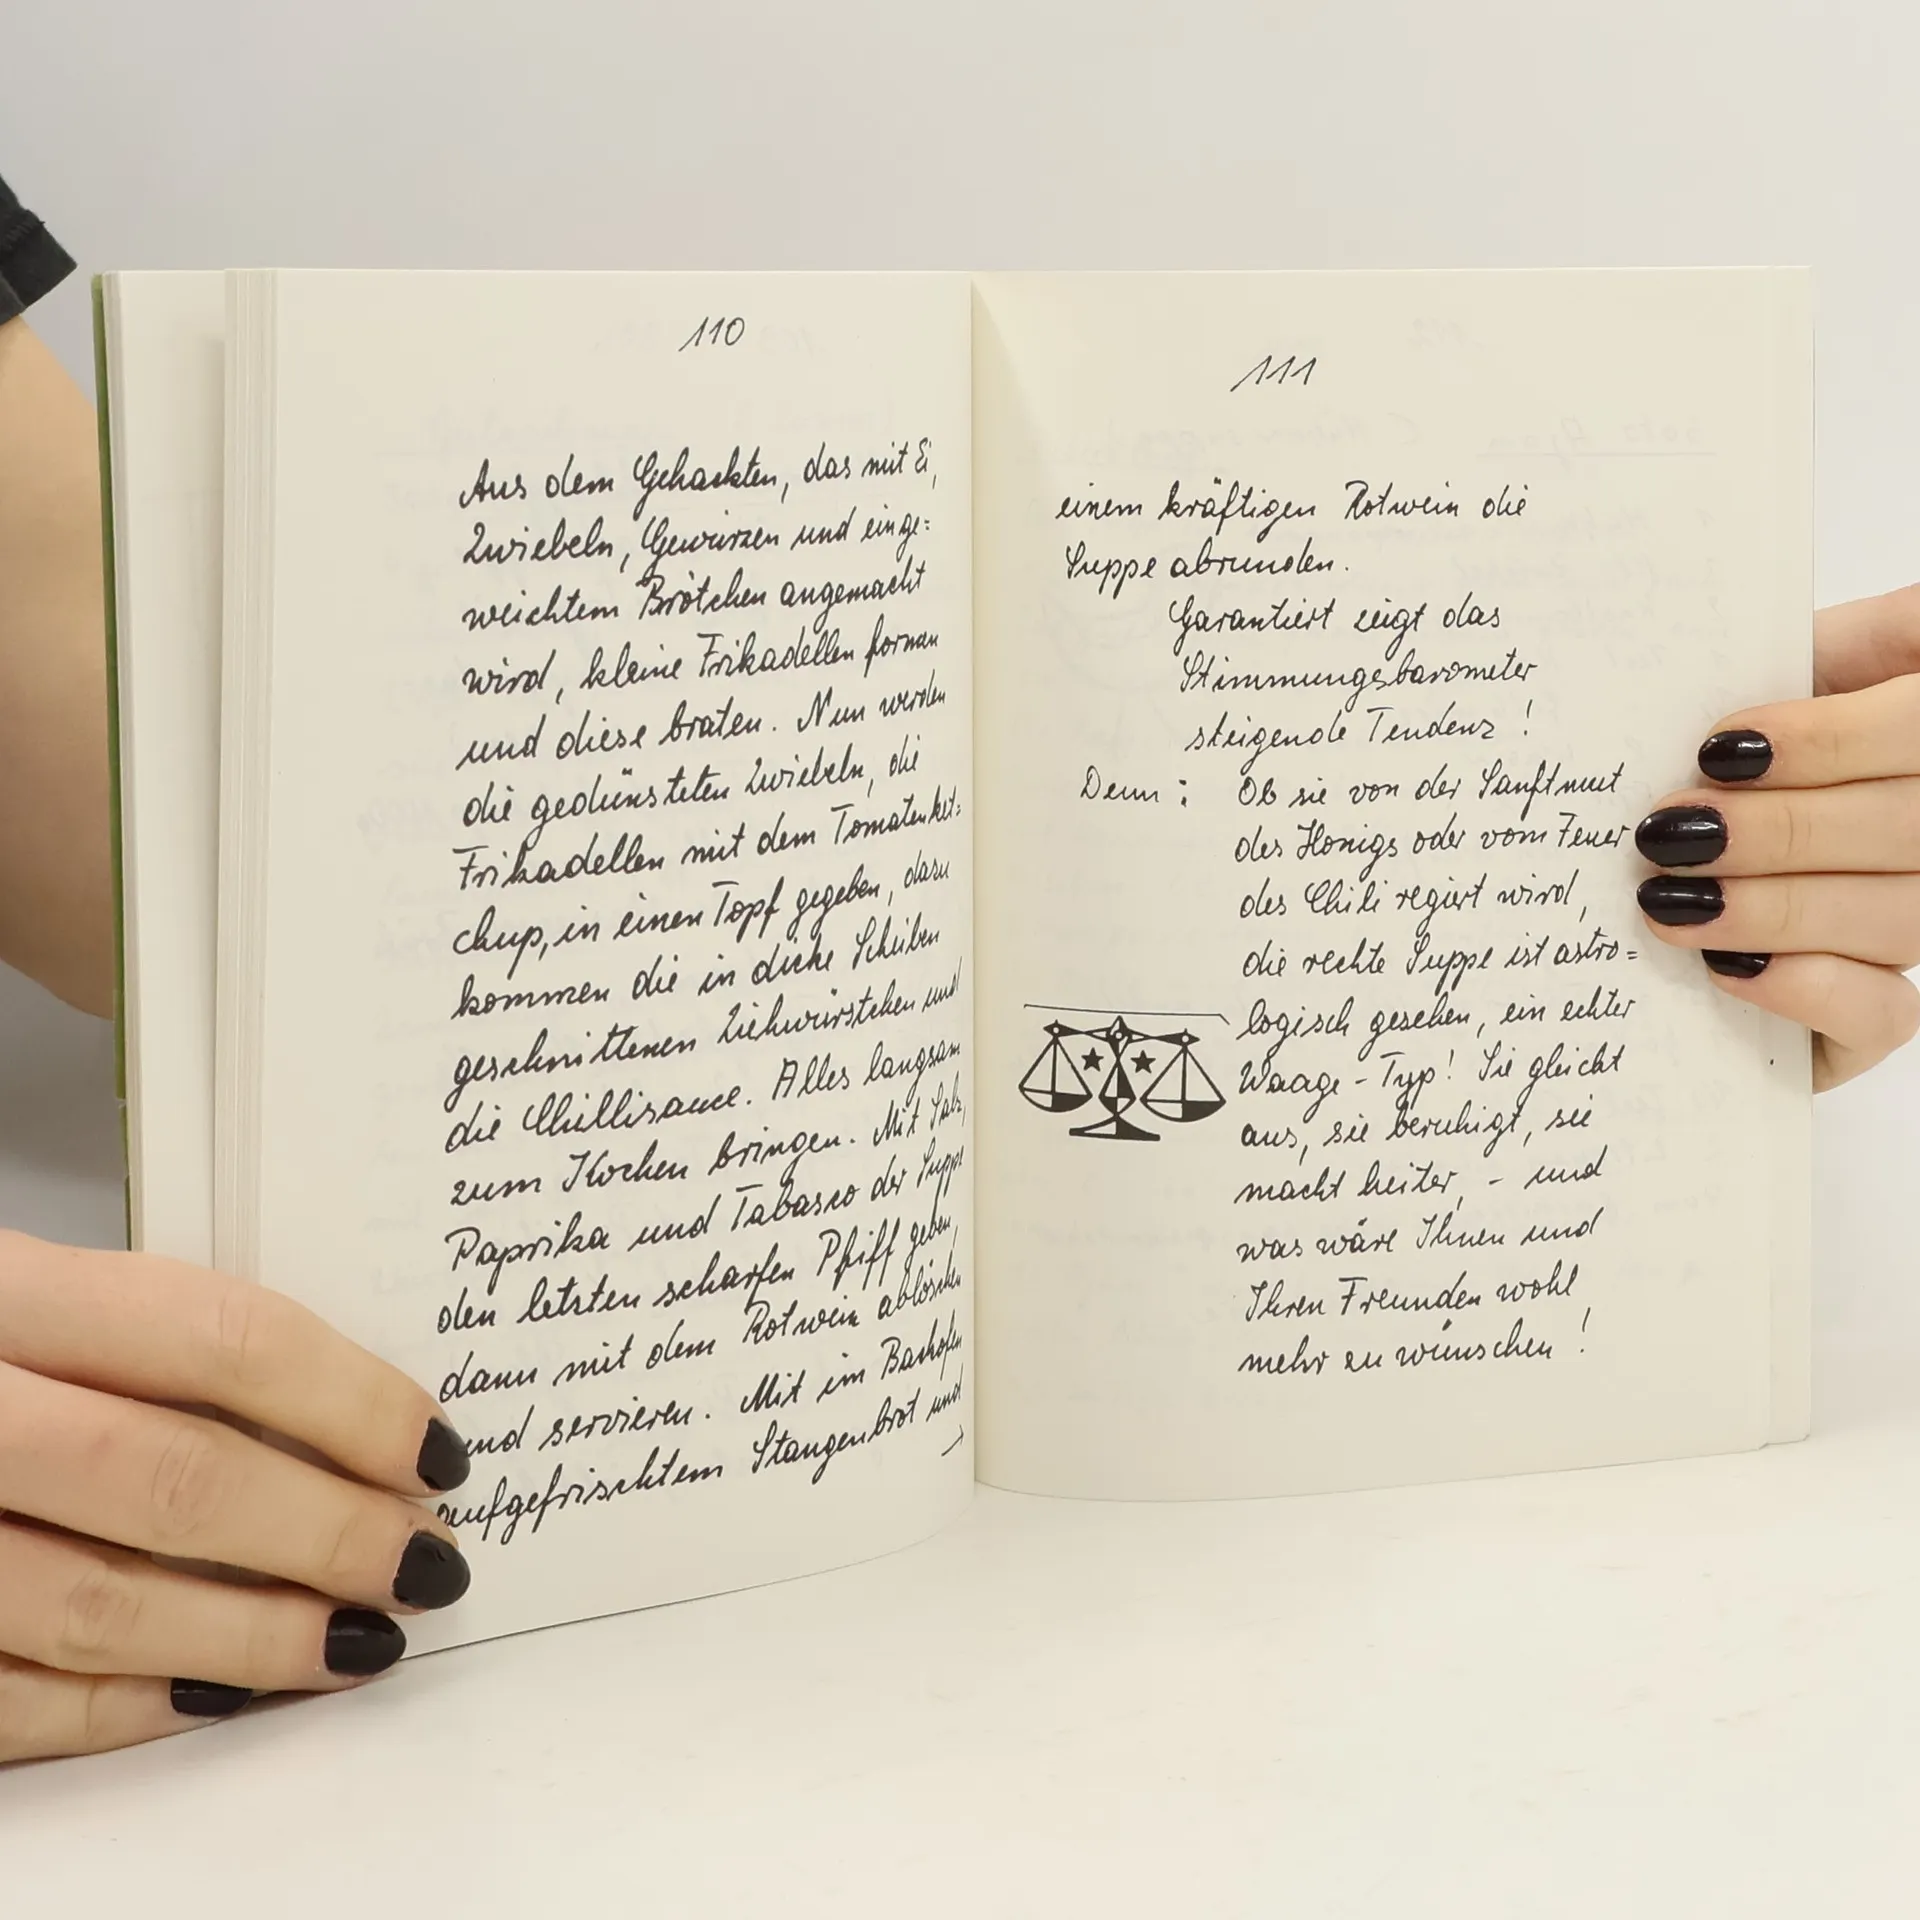 110
Aus dem Gehackten, das mit Ei,
Zwiebeln, Gewürzen und einge=
weichtem Brötchen angemacht
wird, kleine Frikadellen formen
und diese braten. Nun werden
die gedünsteten Zwiebeln, die
Frikadellen mit dem Tomatenket=
chup, in einen Topf gegeben, dazu
kommen die in dicke Scheiben
geschnittenen Ziehwürstchen und
die Chillisauce. Alles langsam
zum Kochen bringen. Mit Salz,
Paprika und Tabasco der Suppe
den letzten scharfen Pfiff geben,
dann mit dem Rotwein ablöschen
und servieren. Mit im Backofen
aufgefrischtem Stangenbrot und
→
111
einem kräftigen Rotwein die
Suppe abrunden.
Garantiert zeigt das
Stimmungsbarometer
steigende Tendenz !
Denn : Ob sie von der Sanftmut
des Honigs oder vom Feuer
des Chili regiert wird,
die rechte Suppe ist astro=
logisch gesehen, ein echter
Waage - Typ! Sie gleicht
aus, sie beruhigt, sie
macht heiter, - und
was wäre Ihnen und
Ihren Freunden wohl
mehr zu wünschen !